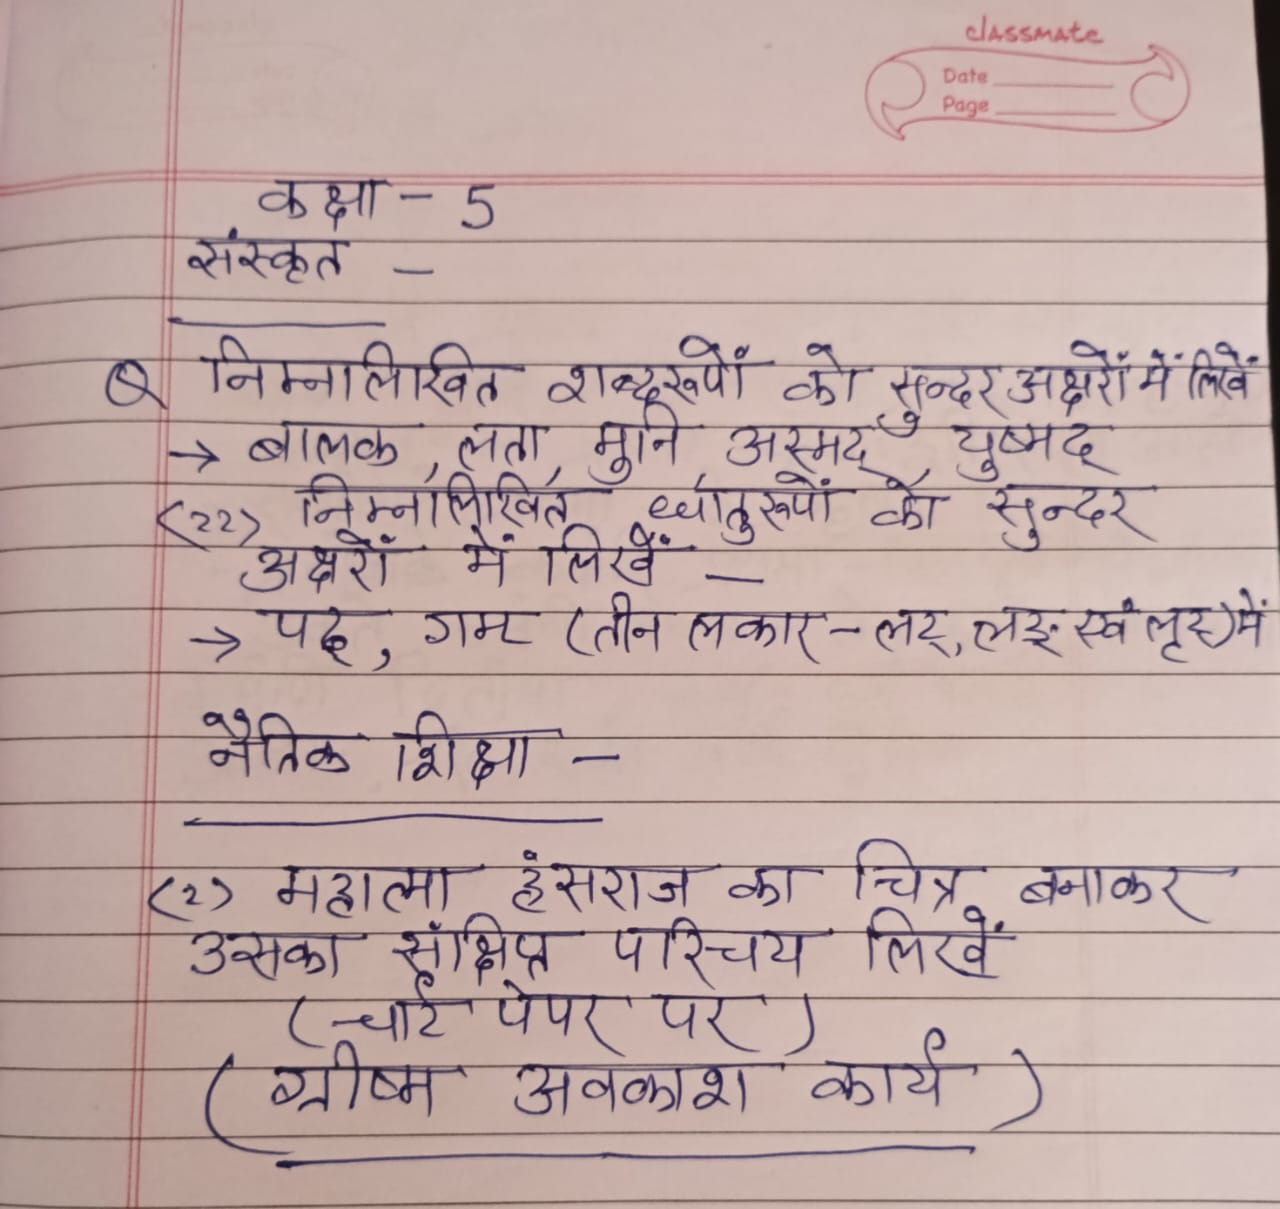 classmate
Date
Page
कक्षा - 5
संस्कृत -
Q निम्नलिखित शब्दरूपों को सुन्दर अक्षरों में लिखें
→ बालक, लता, मुनि, अस्मद्, युष्मद्
(22) निम्नलिखित धातुरूपों को सुन्दर
अक्षरों में लिखें -
→ पठ्, गम् (तीन लकार - लट्, लङ् एवं लृट्) में
नैतिक शिक्षा -
(2) महात्मा हंसराज का चित्र बनाकर
उसका संक्षिप्त परिचय लिखें
(चार्ट पेपर पर)
(ग्रीष्म अवकाश कार्य)